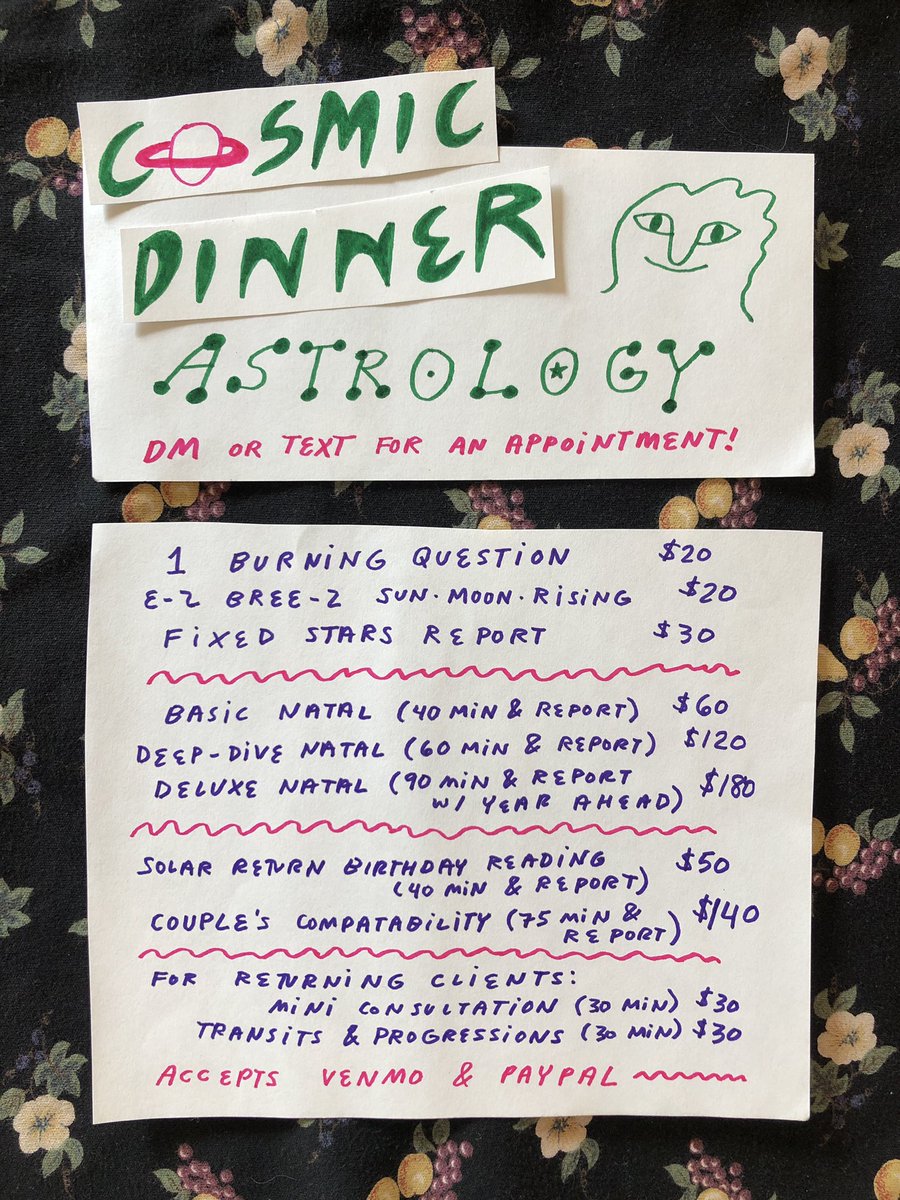 COSMIC
DINNER
ASTROLOGY
DM OR TEXT FOR AN APPOINTMENT!
1 BURNING QUESTION $20
E-Z BREE-Z SUN·MOON·RISING $20
FIXED STARS REPORT $30
BASIC NATAL (40 MIN & REPORT) $60
DEEP-DIVE NATAL (60 MIN & REPORT) $120
DELUXE NATAL (90 MIN & REPORT $180
W/ YEAR AHEAD)
SOLAR RETURN BIRTHDAY READING $50
(40 MIN & REPORT)
COUPLE'S COMPATABILITY (75 MIN & $140
REPORT)
FOR RETURNING CLIENTS:
MINI CONSULTATION (30 MIN) $30
TRANSITS & PROGRESSIONS (30 MIN) $30
ACCEPTS VENMO & PAYPAL